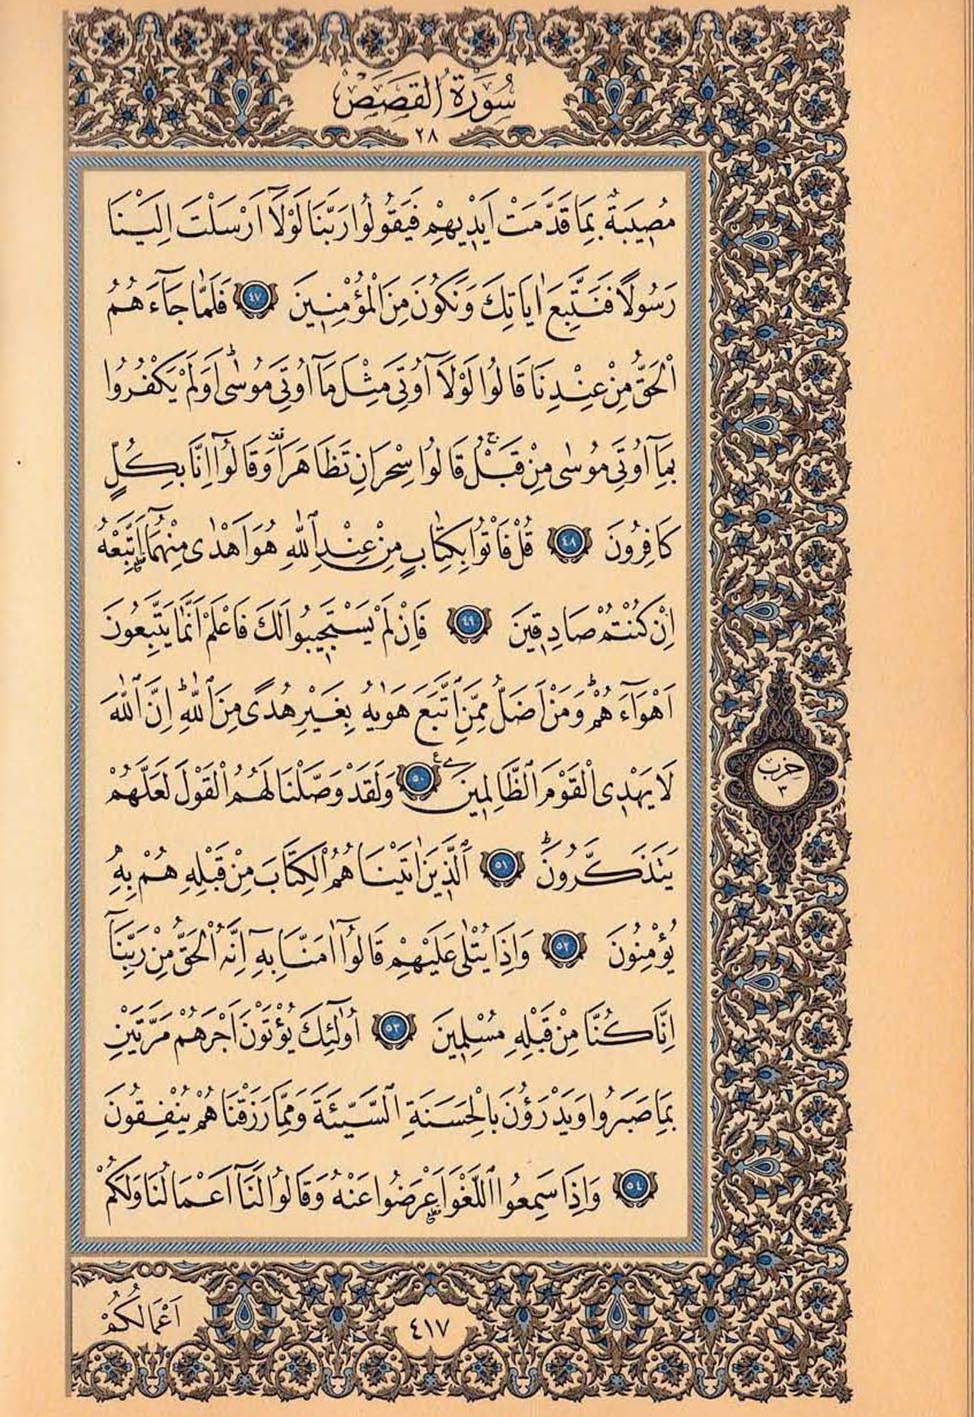 سُورَةُ الْقَصَصِ
٢٨
مُصِيبَةٌ بِمَا قَدَّمَتْ اَيْدِيهِمْ فَيَقُولُوا رَبَّنَا لَوْلَٓا اَرْسَلْتَ اِلَيْنَا
رَسُولًا فَنَتَّبِعَ اٰيَاتِكَ وَنَكُونَ مِنَ الْمُؤْمِنِينَ ٤٧ فَلَمَّا جَٓاءَهُمُ
الْحَقُّ مِنْ عِنْدِنَا قَالُوا لَوْلَٓا اُو۫تِيَ مِثْلَ مَٓا اُو۫تِيَ مُوسٰىۜ اَوَلَمْ يَكْفُرُوا
بِمَٓا اُو۫تِيَ مُوسٰى مِنْ قَبْلُۚ قَالُوا سِحْرَانِ تَظَاهَرَا۠ وَقَالُٓوا اِنَّا بِكُلٍّ
كَافِرُونَ ٤٨ قُلْ فَأْتُوا بِكِتَابٍ مِنْ عِنْدِ اللّٰهِ هُوَ اَهْدٰى مِنْهُمَٓا اَتَّبِعْهُ
اِنْ كُنْتُمْ صَادِقِينَ ٤٩ فَاِنْ لَمْ يَسْتَجِيبُوا لَكَ فَاعْلَمْ اَنَّمَا يَتَّبِعُونَ
اَهْوَٓاءَهُمْۜ وَمَنْ اَضَلُّ مِمَّنِ اتَّبَعَ هَوٰيهُ بِغَيْرِ هُدًى مِنَ اللّٰهِۜ اِنَّ اللّٰهَ
لَا يَهْدِي الْقَوْمَ الظَّالِمِينَ۟ ٥٠ وَلَقَدْ وَصَّلْنَا لَهُمُ الْقَوْلَ لَعَلَّهُمْ
يَتَذَكَّرُونَۜ ٥١ اَلَّذِينَ اٰتَيْنَاهُمُ الْكِتَابَ مِنْ قَبْلِهِ هُمْ بِهِ
يُؤْمِنُونَ ٥٢ وَاِذَا يُتْلٰى عَلَيْهِمْ قَالُٓوا اٰمَنَّا بِهِٓ اِنَّهُ الْحَقُّ مِنْ رَبِّنَٓا
اِنَّا كُنَّا مِنْ قَبْلِهِ مُسْلِمِينَ ٥٣ اُو۬لٰٓئِكَ يُؤْتَوْنَ اَجْرَهُمْ مَرَّتَيْنِ
بِمَا صَبَرُوا وَيَدْرَؤُ۫نَ بِالْحَسَنَةِ السَّيِّئَةَ وَمِمَّا رَزَقْنَاهُمْ يُنْفِقُونَ
٥٤ وَاِذَا سَمِعُوا اللَّغْوَ اَعْرَضُوا عَنْهُ وَقَالُوا لَنَٓا اَعْمَالُنَا وَلَكُمْ
حزب
٣
اَعْمَالُكُمْ
٤١٧